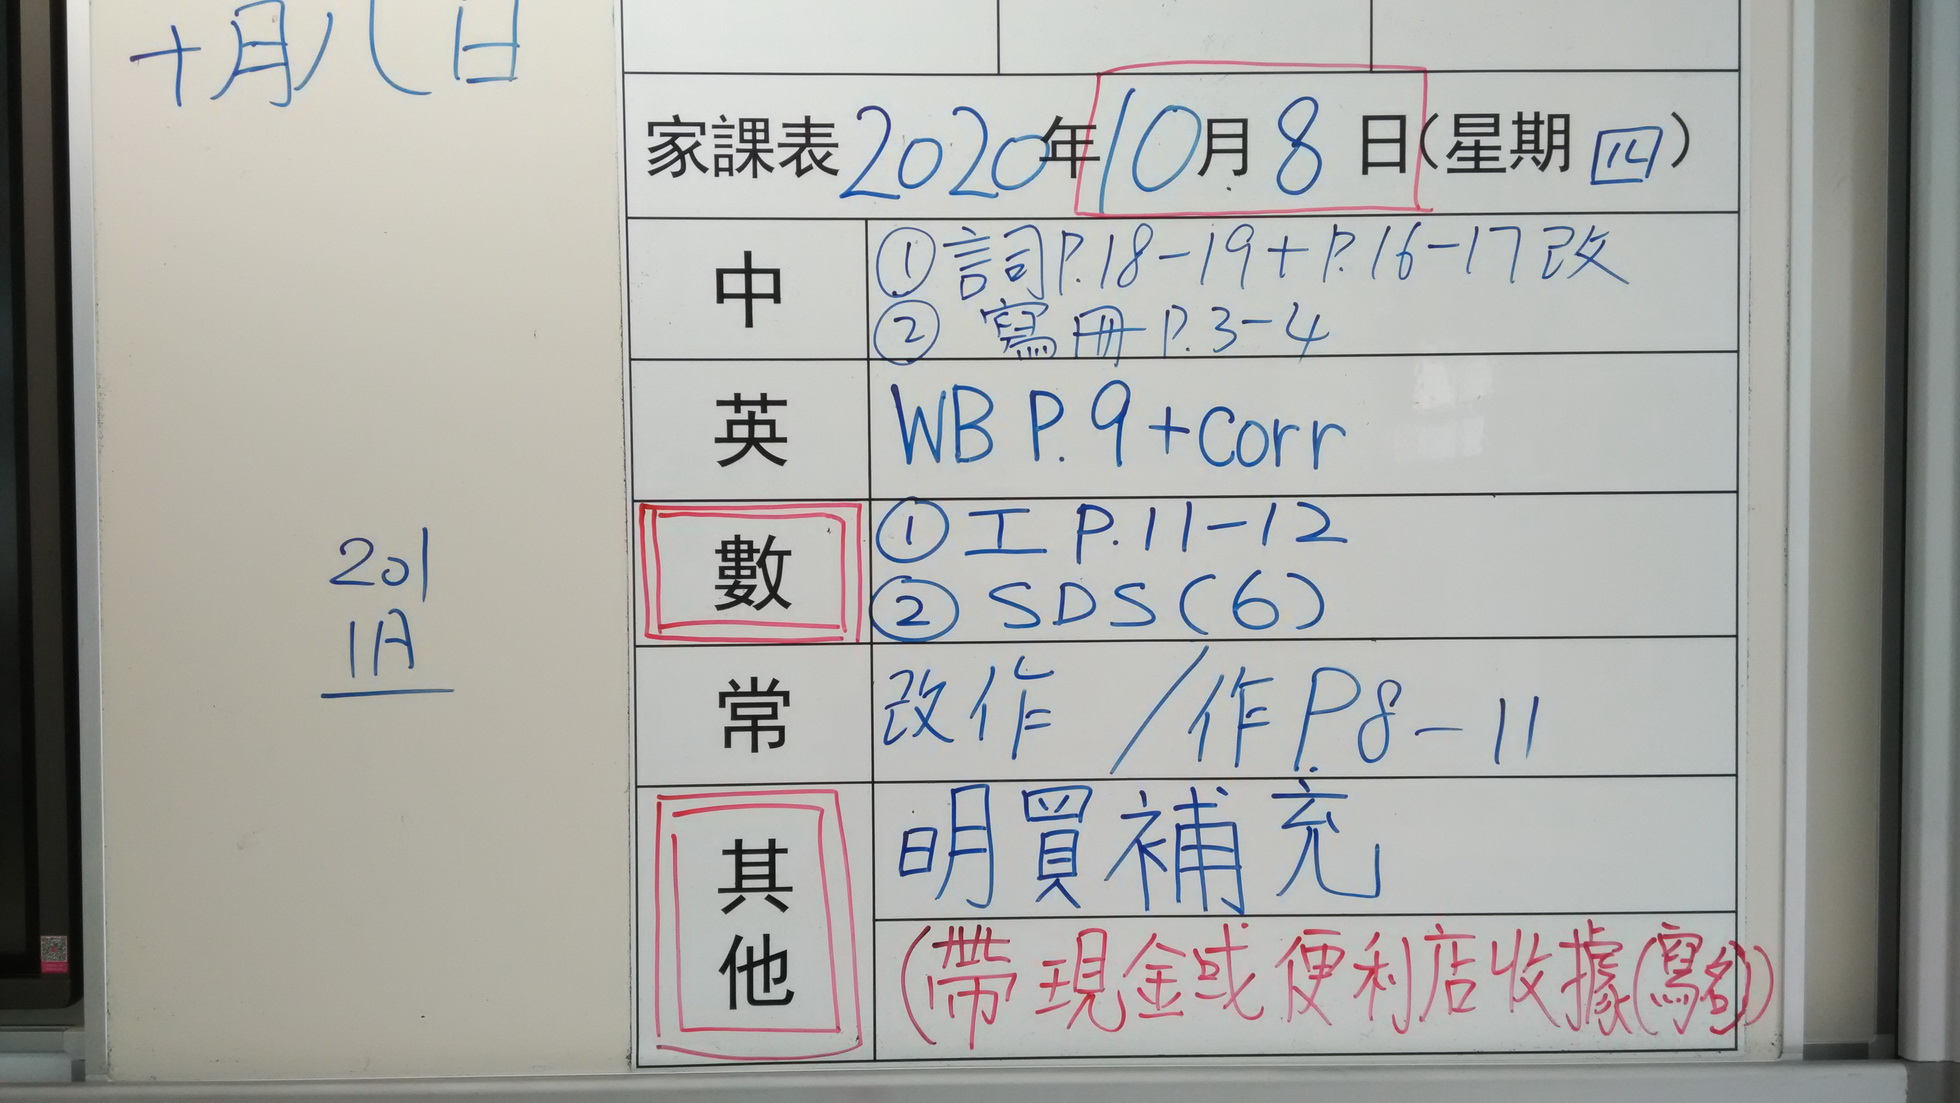 十月八日
家課表2020年10月8日(星期四)
中
①詞P.18-19+P.16-17改
②寫冊P.3-4
英
WB P.9+Corr
數
①工P.11-12
②SDS(6)
201
1A
常
改作/作P.8-11
其他
明買補充
(帶現金或便利店收據(寫名))